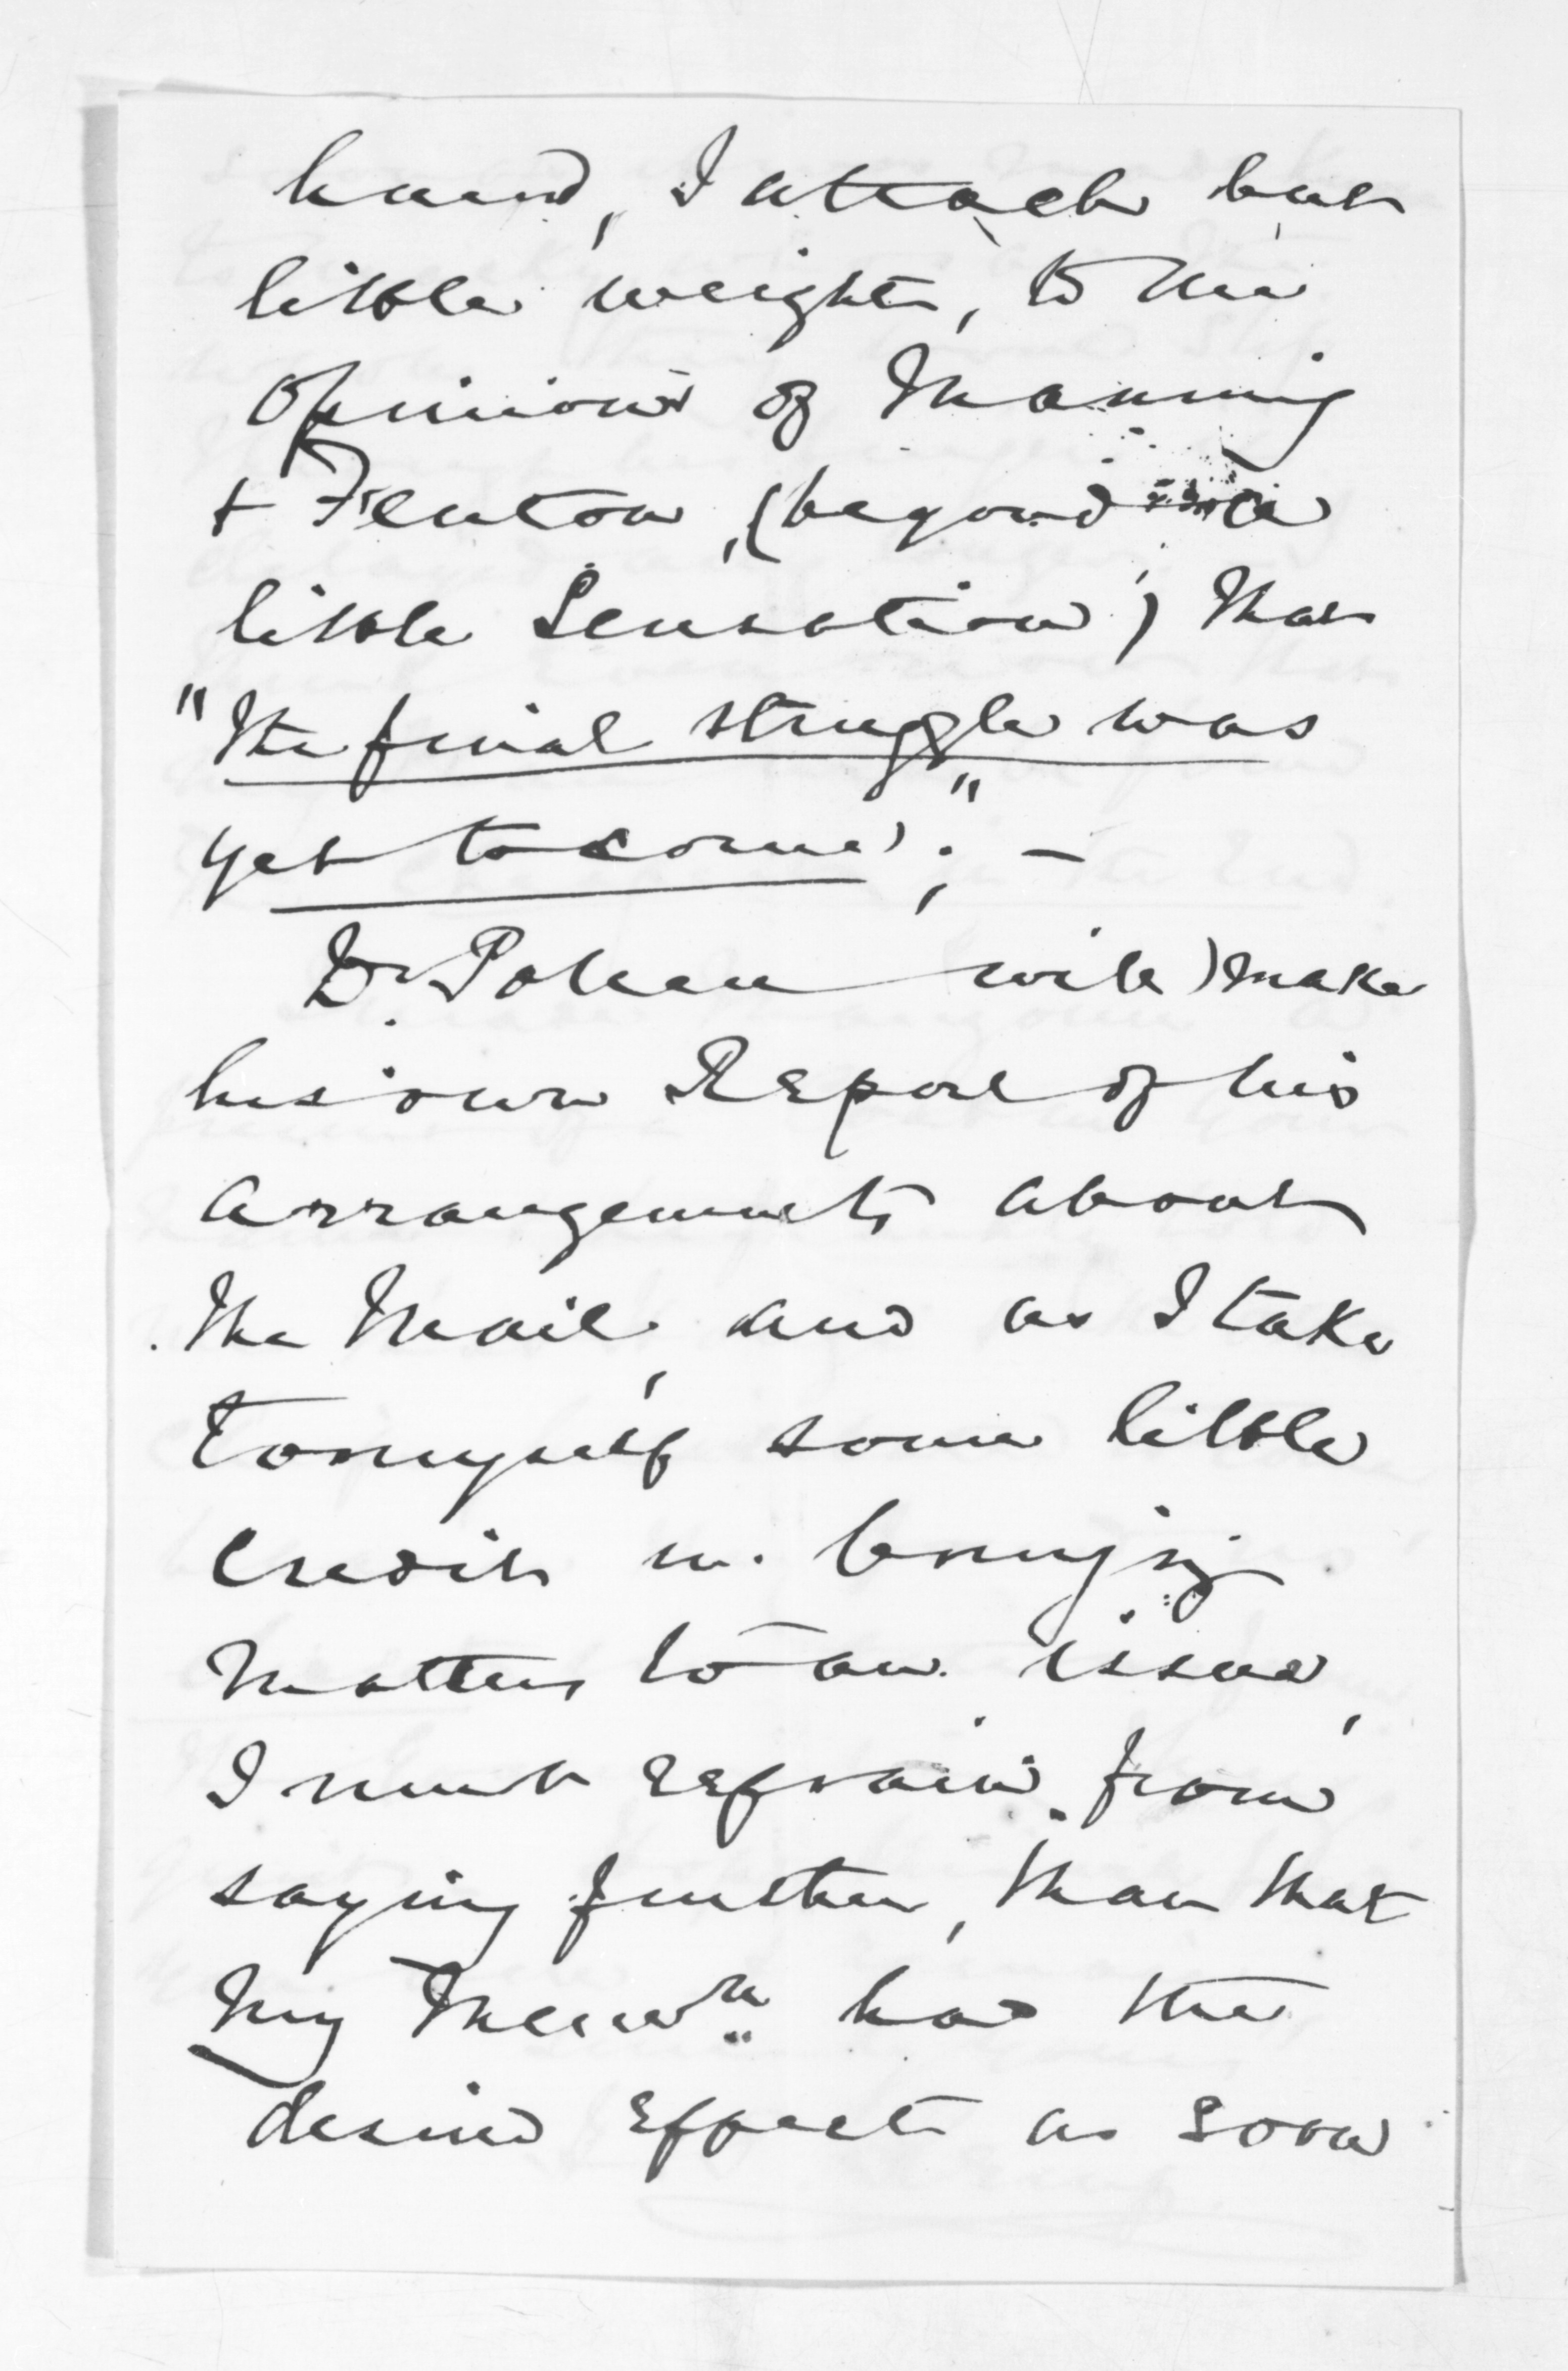 hand, I attach but
little weight, to the
opinions of Manning
& Fenton, (beyond a
little Sensation) that
"the final struggle was
yet to come"; —
Dr Pollen will make
his own Report of his
arrangements about
the Mail, and as I take
to myself some little
credit in bringing
matters to an issue,
I must refrain from
saying further, than that
my Memn. had the
desired effect as soon